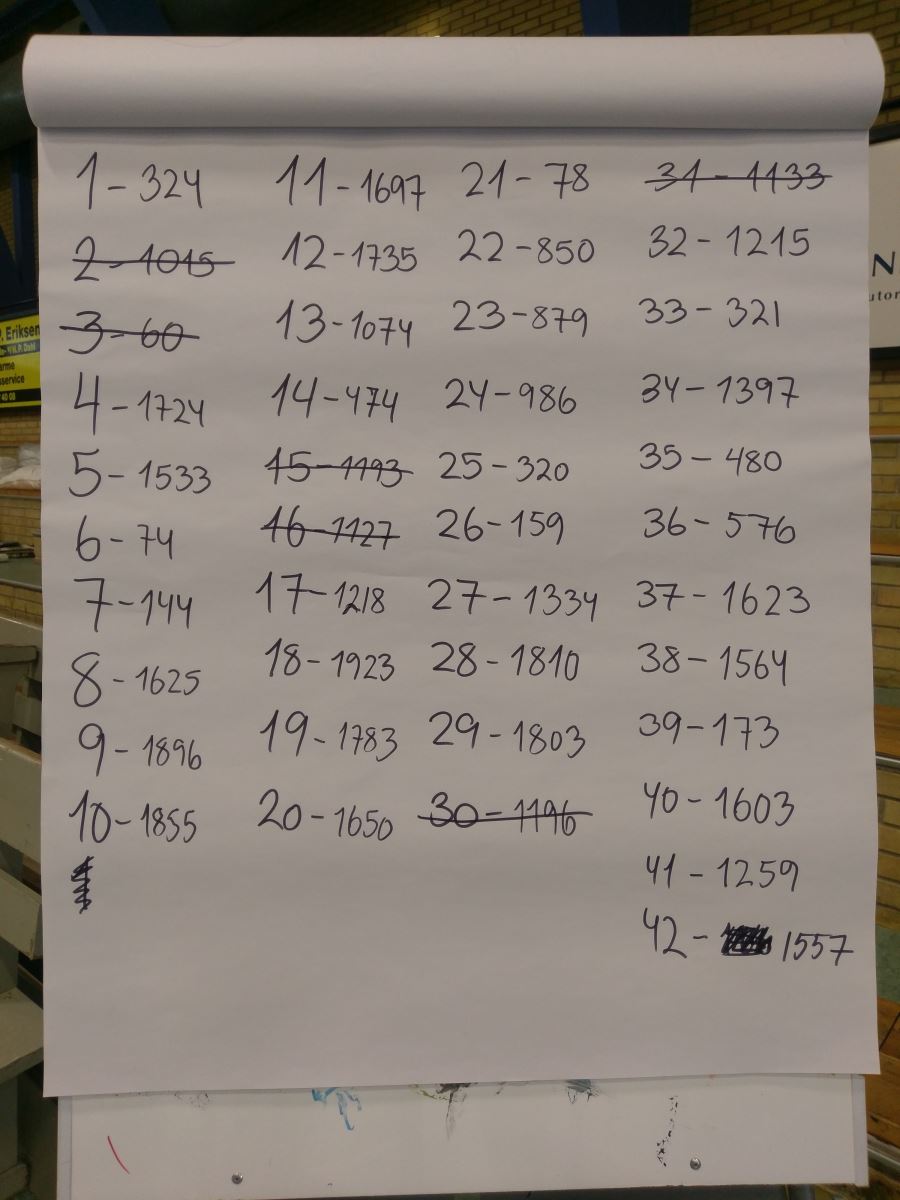 1 - 324
2 - 1015
3 - 60
4 - 1724
5 - 1533
6 - 74
7 - 144
8 - 1625
9 - 1896
10 - 1855
11 - 1697
12 - 1735
13 - 1074
14 - 474
15 - 1193
16 - 1127
17 - 1218
18 - 1923
19 - 1783
20 - 1650
21 - 78
22 - 850
23 - 879
24 - 986
25 - 320
26 - 159
27 - 1334
28 - 1810
29 - 1803
30 - 1196
31 - 1133
32 - 1215
33 - 321
34 - 1397
35 - 480
36 - 576
37 - 1623
38 - 1564
39 - 173
40 - 1603
41 - 1259
42 - 1557
P. Eriksen